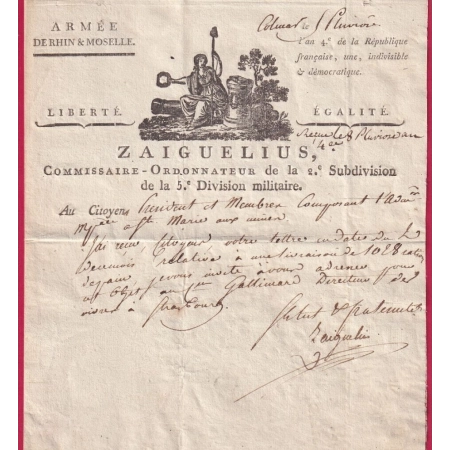 ARMÉE
DE RHIN & MOSELLE.
Colmar le Pluviose
l'an 4.e de la République
française, une, indivisible
& démocratique.
LIBERTÉ.
ÉGALITÉ.
Pluviose an
4e
ZAIGUELIUS,
COMMISSAIRE-ORDONNATEUR de la 2.e Subdivision
de la 5.e Division militaire.
Au Citoyens President et Membres Composant l'adm
a Ste Marie aux mines
J'ai reçu, Citoyens votre lettre en date du 2
relative a une livraison de 1028
objet, je vous invite a vous adresser
au Cen Gallimard Directeur des
vivres à Strasbourg
Salut & fraternité
Zaiguelius